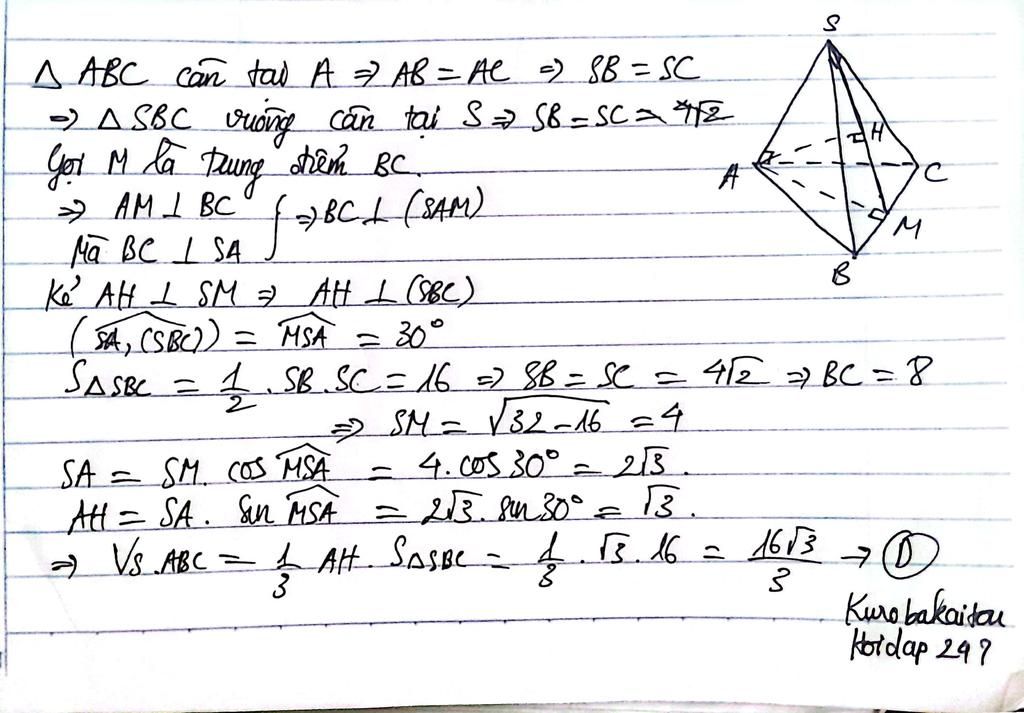 △ ABC cân tại A ⇒ AB = AC ⇒ SB = SC
⇒ △ SBC vuông cân tại S ⇒ SB = SC = 4√2
Gọi M là trung điểm BC.
⇒ AM ⊥ BC
Mà BC ⊥ SA } ⇒ BC ⊥ (SAM)
Kẻ AH ⊥ SM ⇒ AH ⊥ (SBC)
(SA, (SBC)) = MSA = 30°
S△SBC = 1/2 . SB . SC = 16 ⇒ SB = SC = 4√2 ⇒ BC = 8
⇒ SM = √32-16 = 4
SA = SM. cos MSA = 4. cos 30° = 2√3.
AH = SA . Sin MSA = 2√3. sin 30° = √3.
⇒ VS.ABC = 1/3 AH . S△SBC = 1/3 . √3 . 16 = 16√3/3 → D
Kurobakaitou
Hoidap 247
S
H
A
C
M
B